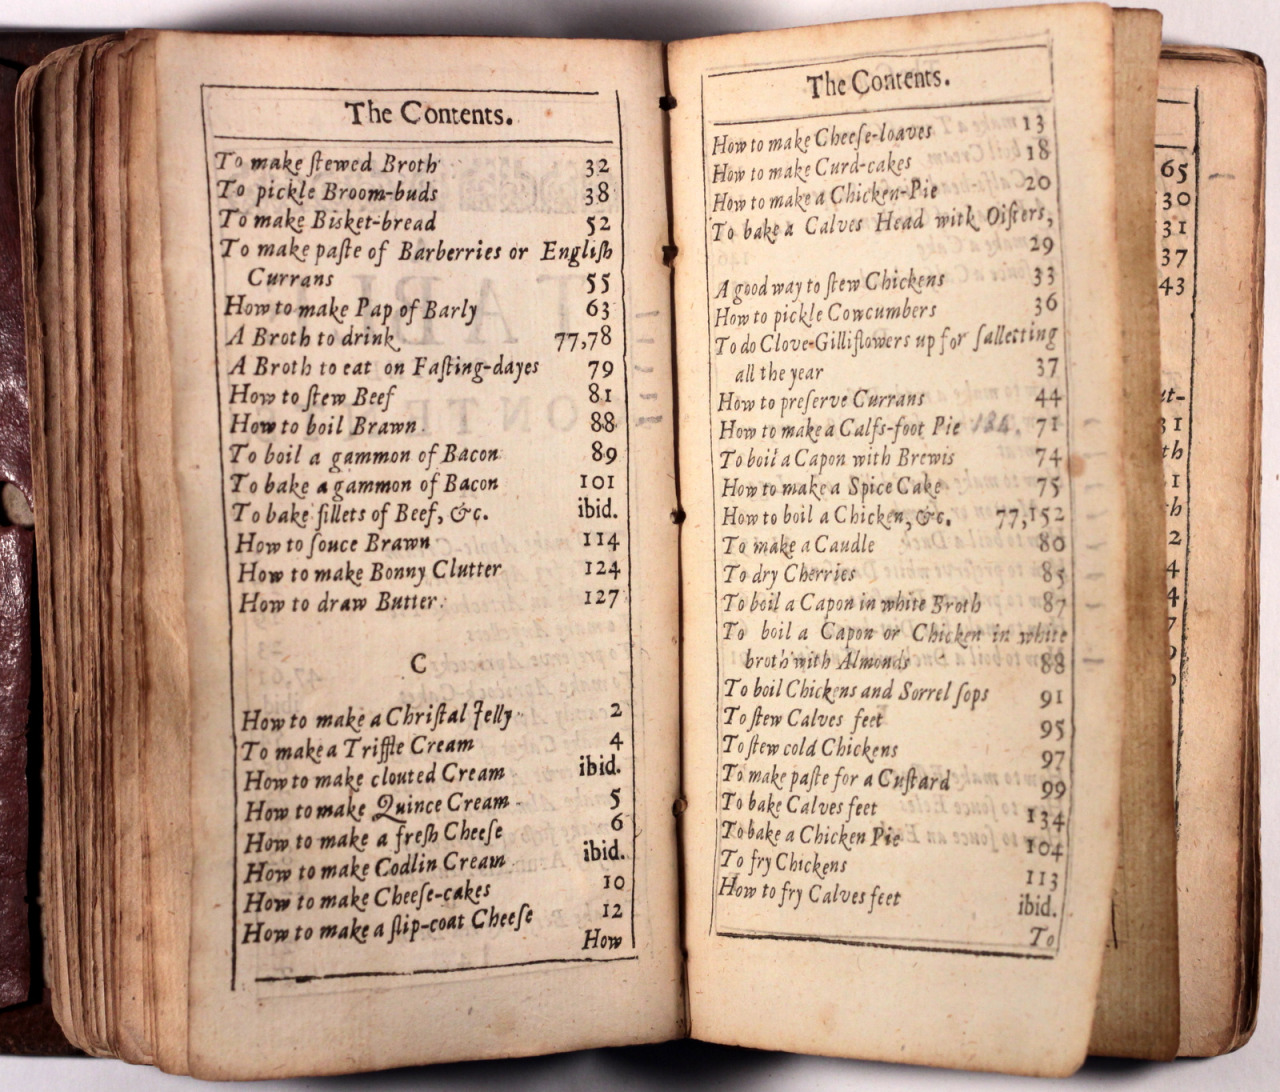 The Contents.
To make ſtewed Broth 32
To pickle Broom-buds 38
To make Bisket-bread 52
To make paſte of Barberries or Engliſh
Currans 55
How to make Pap of Barly 63
A Broth to drink 77,78
A Broth to eat on Faſting-dayes 79
How to ſtew Beef 81
How to boil Brawn 88
To boil a gammon of Bacon 89
To bake a gammon of Bacon 101
To bake fillets of Beef, &c. ibid.
How to ſouce Brawn 114
How to make Bonny Clutter 124
How to draw Butter. 127
C
How to make a Chriſtal Jelly 2
To make a Triffle Cream 4
How to make clouted Cream ibid.
How to make Quince Cream 5
How to make a freſh Cheeſe 6
How to make Codlin Cream ibid.
How to make Cheeſe-cakes 10
How to make a ſlip-coat Cheeſe 12
How
The Contents.
How to make Cheeſe-loaves 13
How to make Curd-cakes 18
How to make a Chicken-Pie 20
To bake a Calves Head with Oiſters,
29
A good way to ſtew Chickens 33
How to pickle Cowcumbers 36
To do Clove-Gilliflowers up for ſalletting
all the year 37
How to preſerve Currans 44
How to make a Calfs-foot Pie 71
To boil a Capon with Brewis 74
How to make a Spice Cake 75
How to boil a Chicken, &c. 77,152
To make a Caudle 80
To dry Cherries 85
To boil a Capon in white Broth 87
To boil a Capon or Chicken in white
broth with Almonds 88
To boil Chickens and Sorrel ſops 91
To ſtew Calves feet 95
To ſtew cold Chickens 97
To make paſte for a Cuſtard 99
To bake Calves feet 134
To bake a Chicken Pie 104
To fry Chickens 113
How to fry Calves feet ibid.
To
65
30
31
37
43